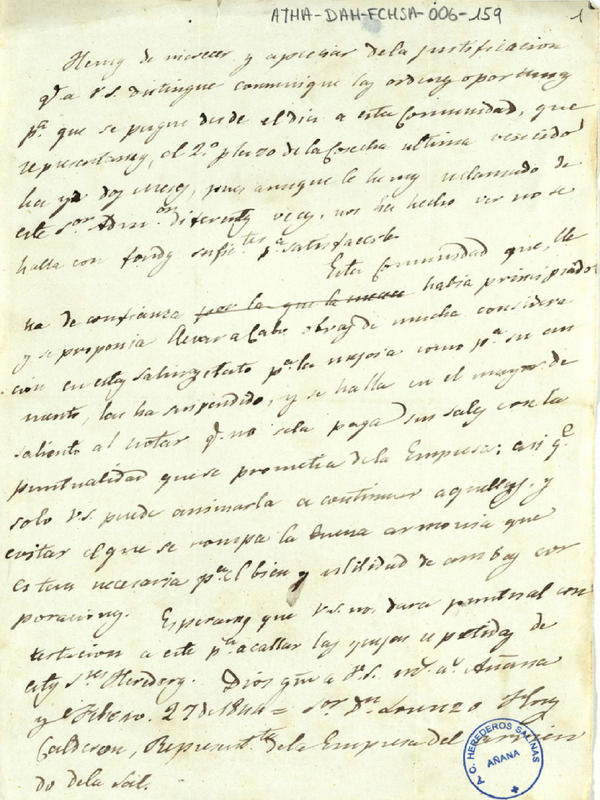 ATHA-DAH-FCHSA-006-159
1
Hemos de merecer y apreciar de la justificacion
q.e a V.S. distingue comunique las ordenes oportunas
p.a que se pague desde el dia a esta Comunidad, que
representamos, el 2.o plazo de la Cosecha ultima vencido
hace ya dos meses, pues aunque le hemos reclamado de
este S.or Adm.on diferentes veces, nos ha hecho ver no se
halla con fondos sufic.tes p.a satisfacerle
Esta Comunidad que lle
na de confianza por la que la había principiado
y se proponia llevar a Cabo obras de mucha considera
cion en estas salinas tanto p.a la mejora como p.a su au
mento, las ha suspendido, y se halla en el mayor de
saliento al notar q.e no se la paga sus sales con la
puntualidad que se prometia de la Empresa: asi q.e
solo V.S. puede animarla a continuar aquellas, y
evitar el que se rompa la buena armonia que
es tan necesaria p.a el bien y utilidad de ambas cor
poraciones. Esperamos que V.S. nos dara puntual con
testacion a este p.a acallar las quejas repetidas de
estos S.res Herederos. Dios gu.e a V.S. m.s a.s Añana
y Febrero 27 de 1844 = S.or D.n Lorenzo Flores
Calderon, Represent.te de la Empresa del
do de la Sal.
A.C. HEREDEROS SALINAS
AÑANA